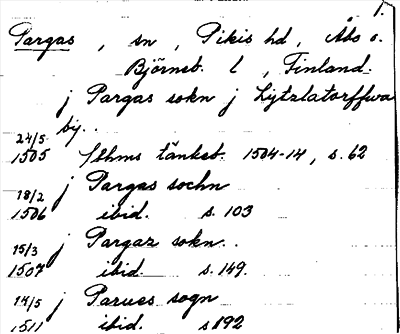 1.
Pargas, sn, Pikis hd, Åbo o.
Björneb. l, Finland.
j Pargas sokn j Lytzlatorffwa
by.
24/5
1505 Sthms tänkeb. 1504-14, s. 62
18/2 j Pargas sochn
1506 ibid. s. 103
15/3 j Pargaz sokn.
1507 ibid. s. 149.
14/5 j Parues sogn
1511 ibid. s 192